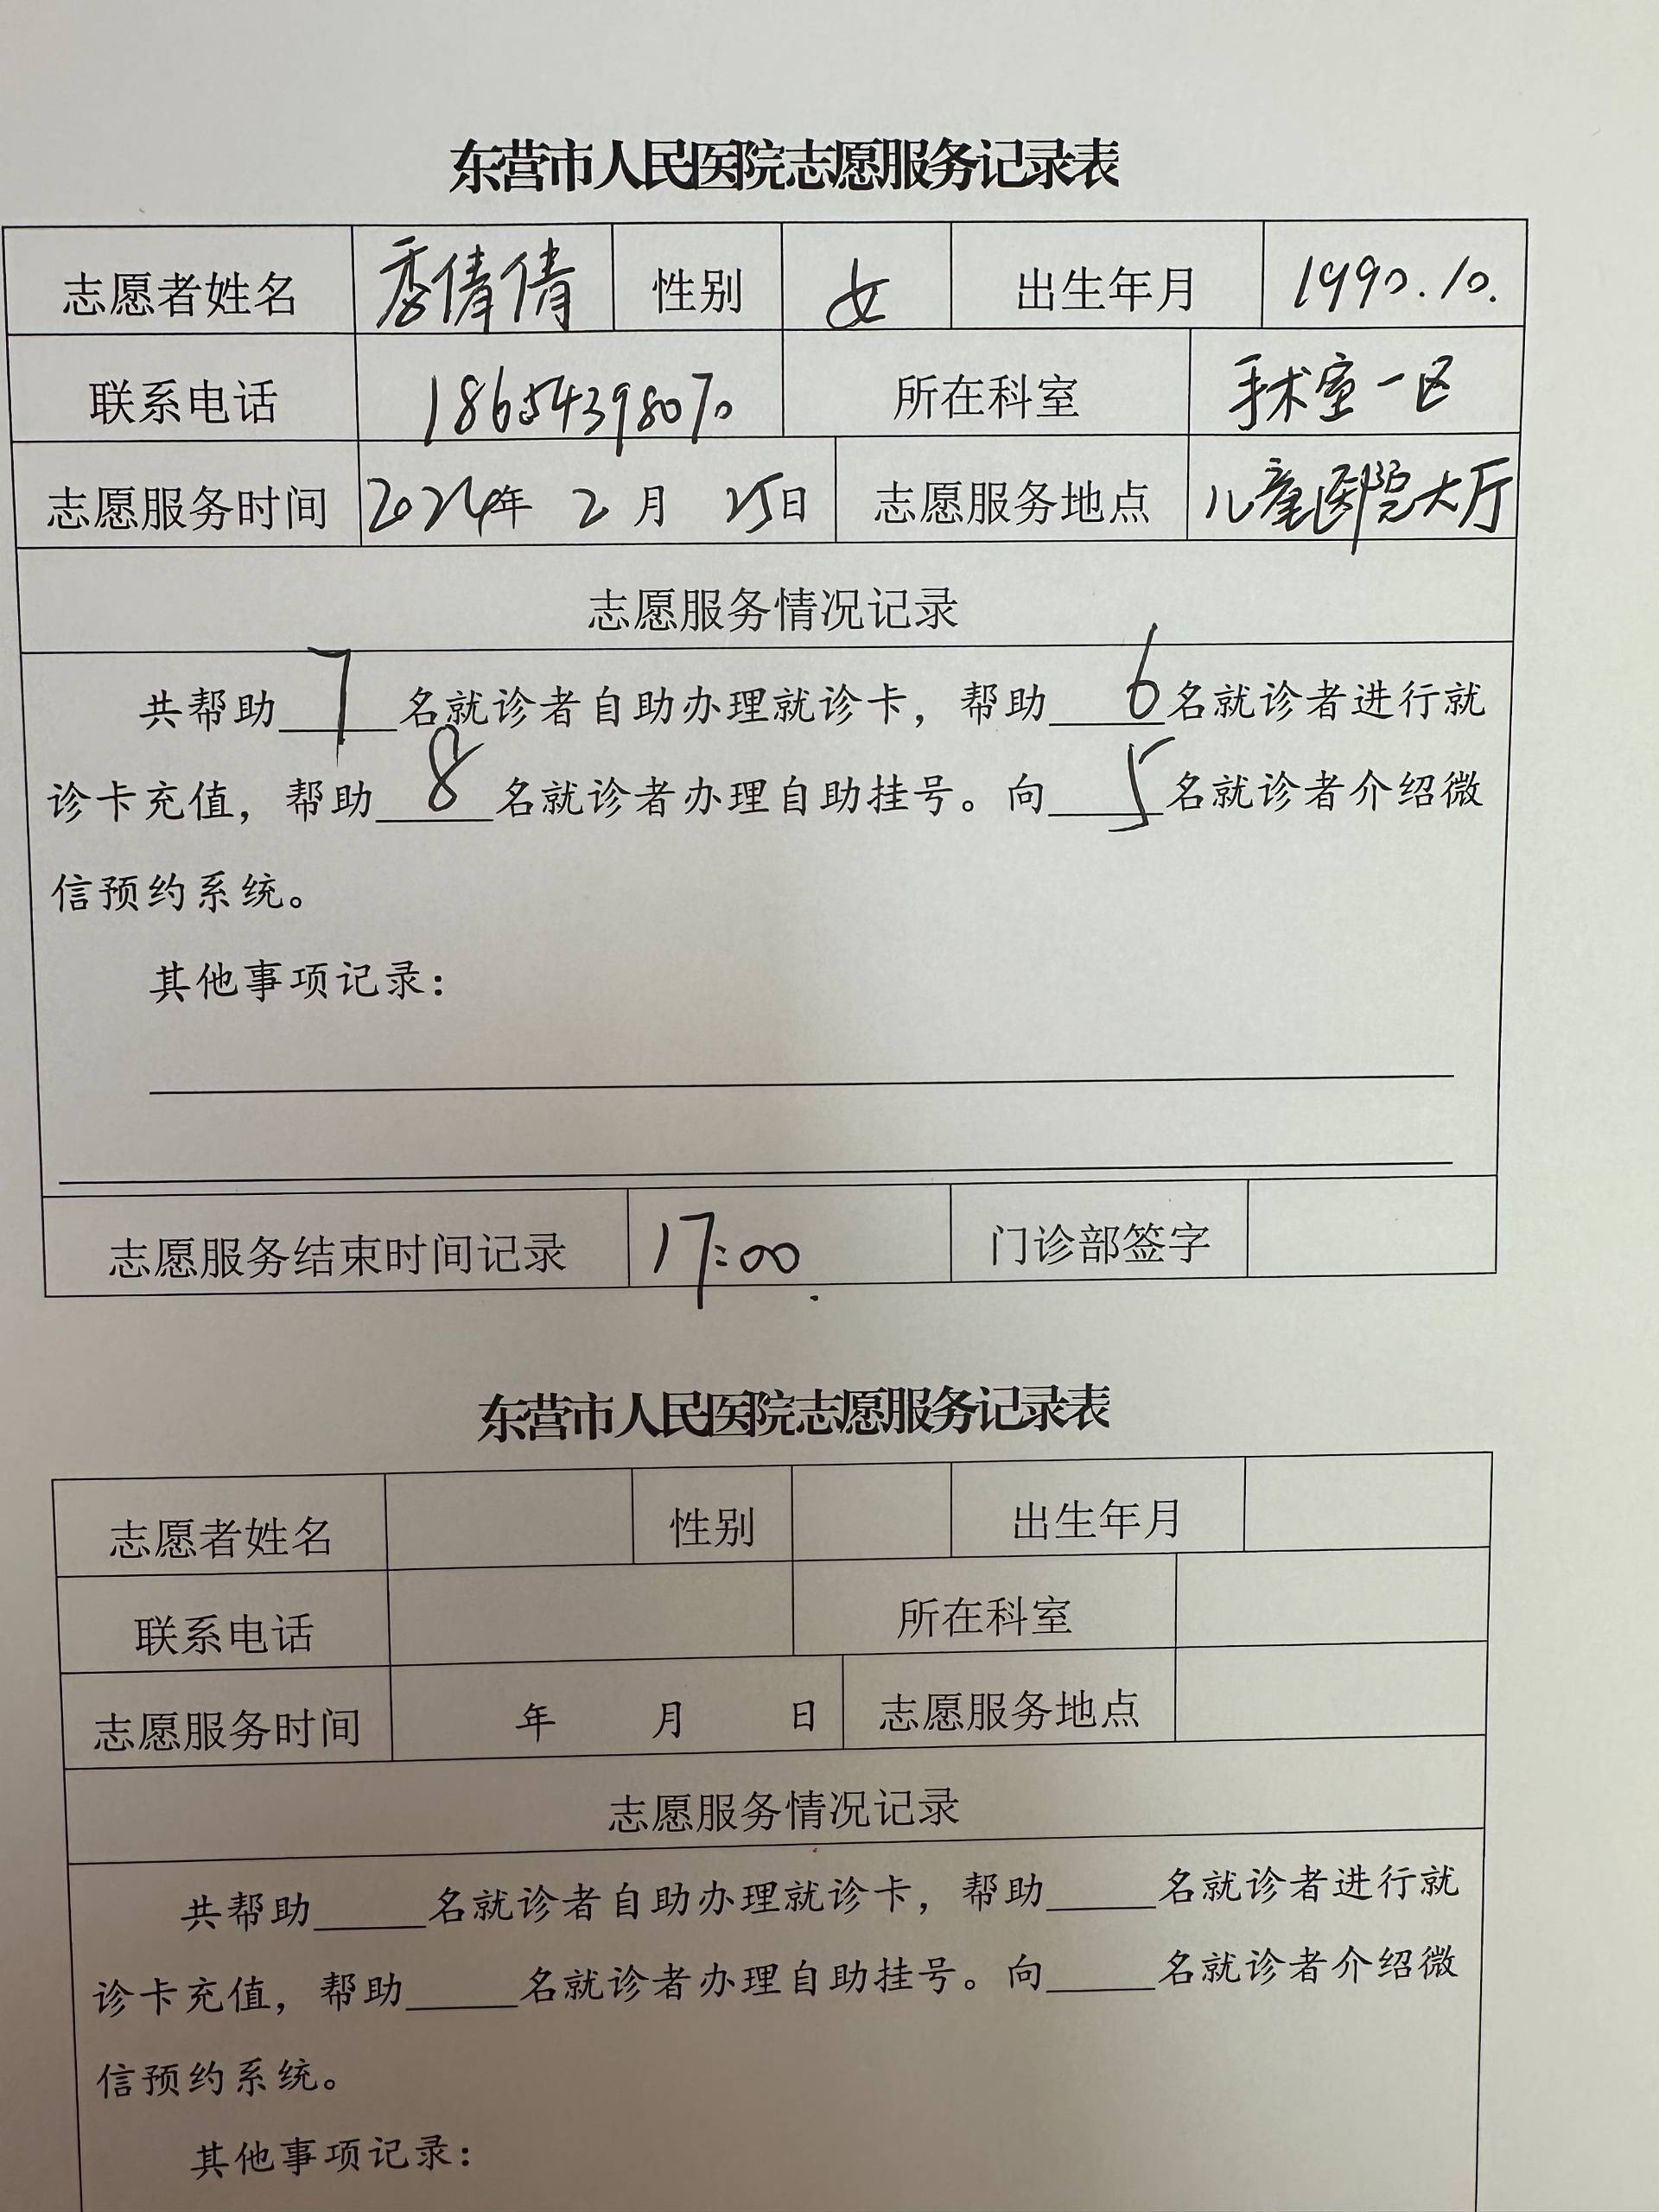 东营市人民医院志愿服务记录表
志愿者姓名 倩倩 性别 女 出生年月 1990.10.
联系电话 18654398070 所在科室 手术室一区
志愿服务时间 2024年 2月 25日 志愿服务地点 儿童医院大厅
志愿服务情况记录
共帮助 7 名就诊者自助办理就诊卡，帮助 6 名就诊者进行就
诊卡充值，帮助 8 名就诊者办理自助挂号。向 5 名就诊者介绍微
信预约系统。
其他事项记录：
志愿服务结束时间记录 17:00 门诊部签字
东营市人民医院志愿服务记录表
志愿者姓名 性别 出生年月
联系电话 所在科室
志愿服务时间 年 月 日 志愿服务地点
志愿服务情况记录
共帮助_____名就诊者自助办理就诊卡，帮助_____名就诊者进行就
诊卡充值，帮助_____名就诊者办理自助挂号。向_____名就诊者介绍微
信预约系统。
其他事项记录：